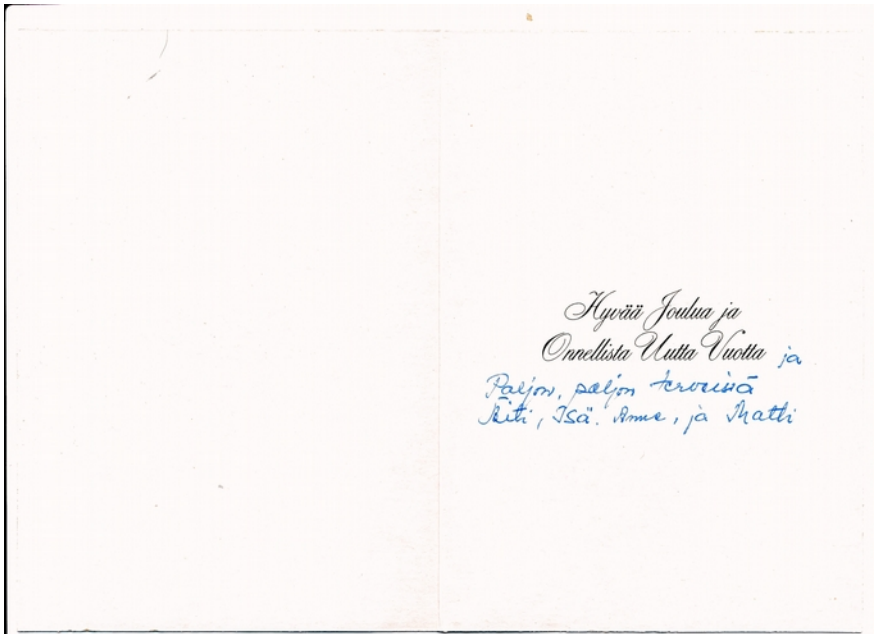 Hyvää Joulua ja
Onnellista Uutta Vuotta ja
Paljon, paljon terveisiä
Äiti, Isä. Anne, ja Matti